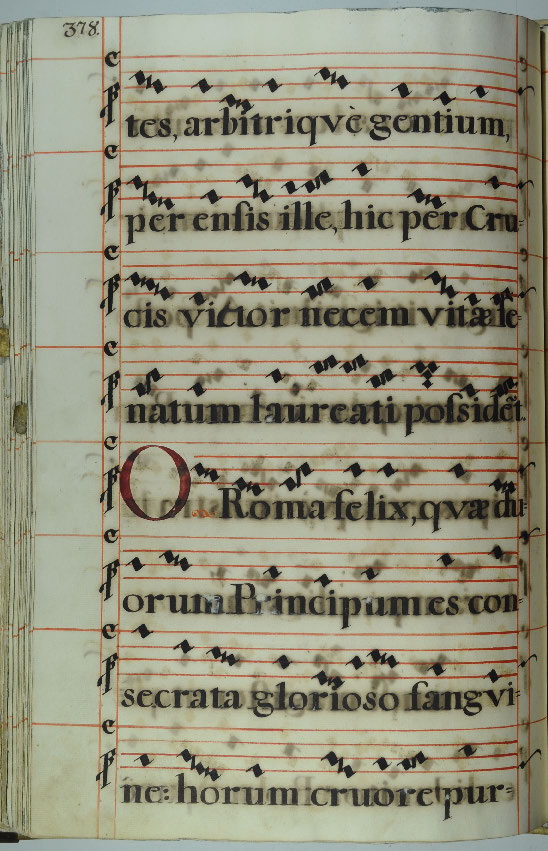 378.
tes, arbitriqvè gentium,
per ensis ille, hic per Cru-
cis victor necem vitæ se-
natum laureati possidẽt.
O Roma felix, qvæ du-
orum Principum es con-
secrata glorioso sangvi-
ne: horum cruore pur-